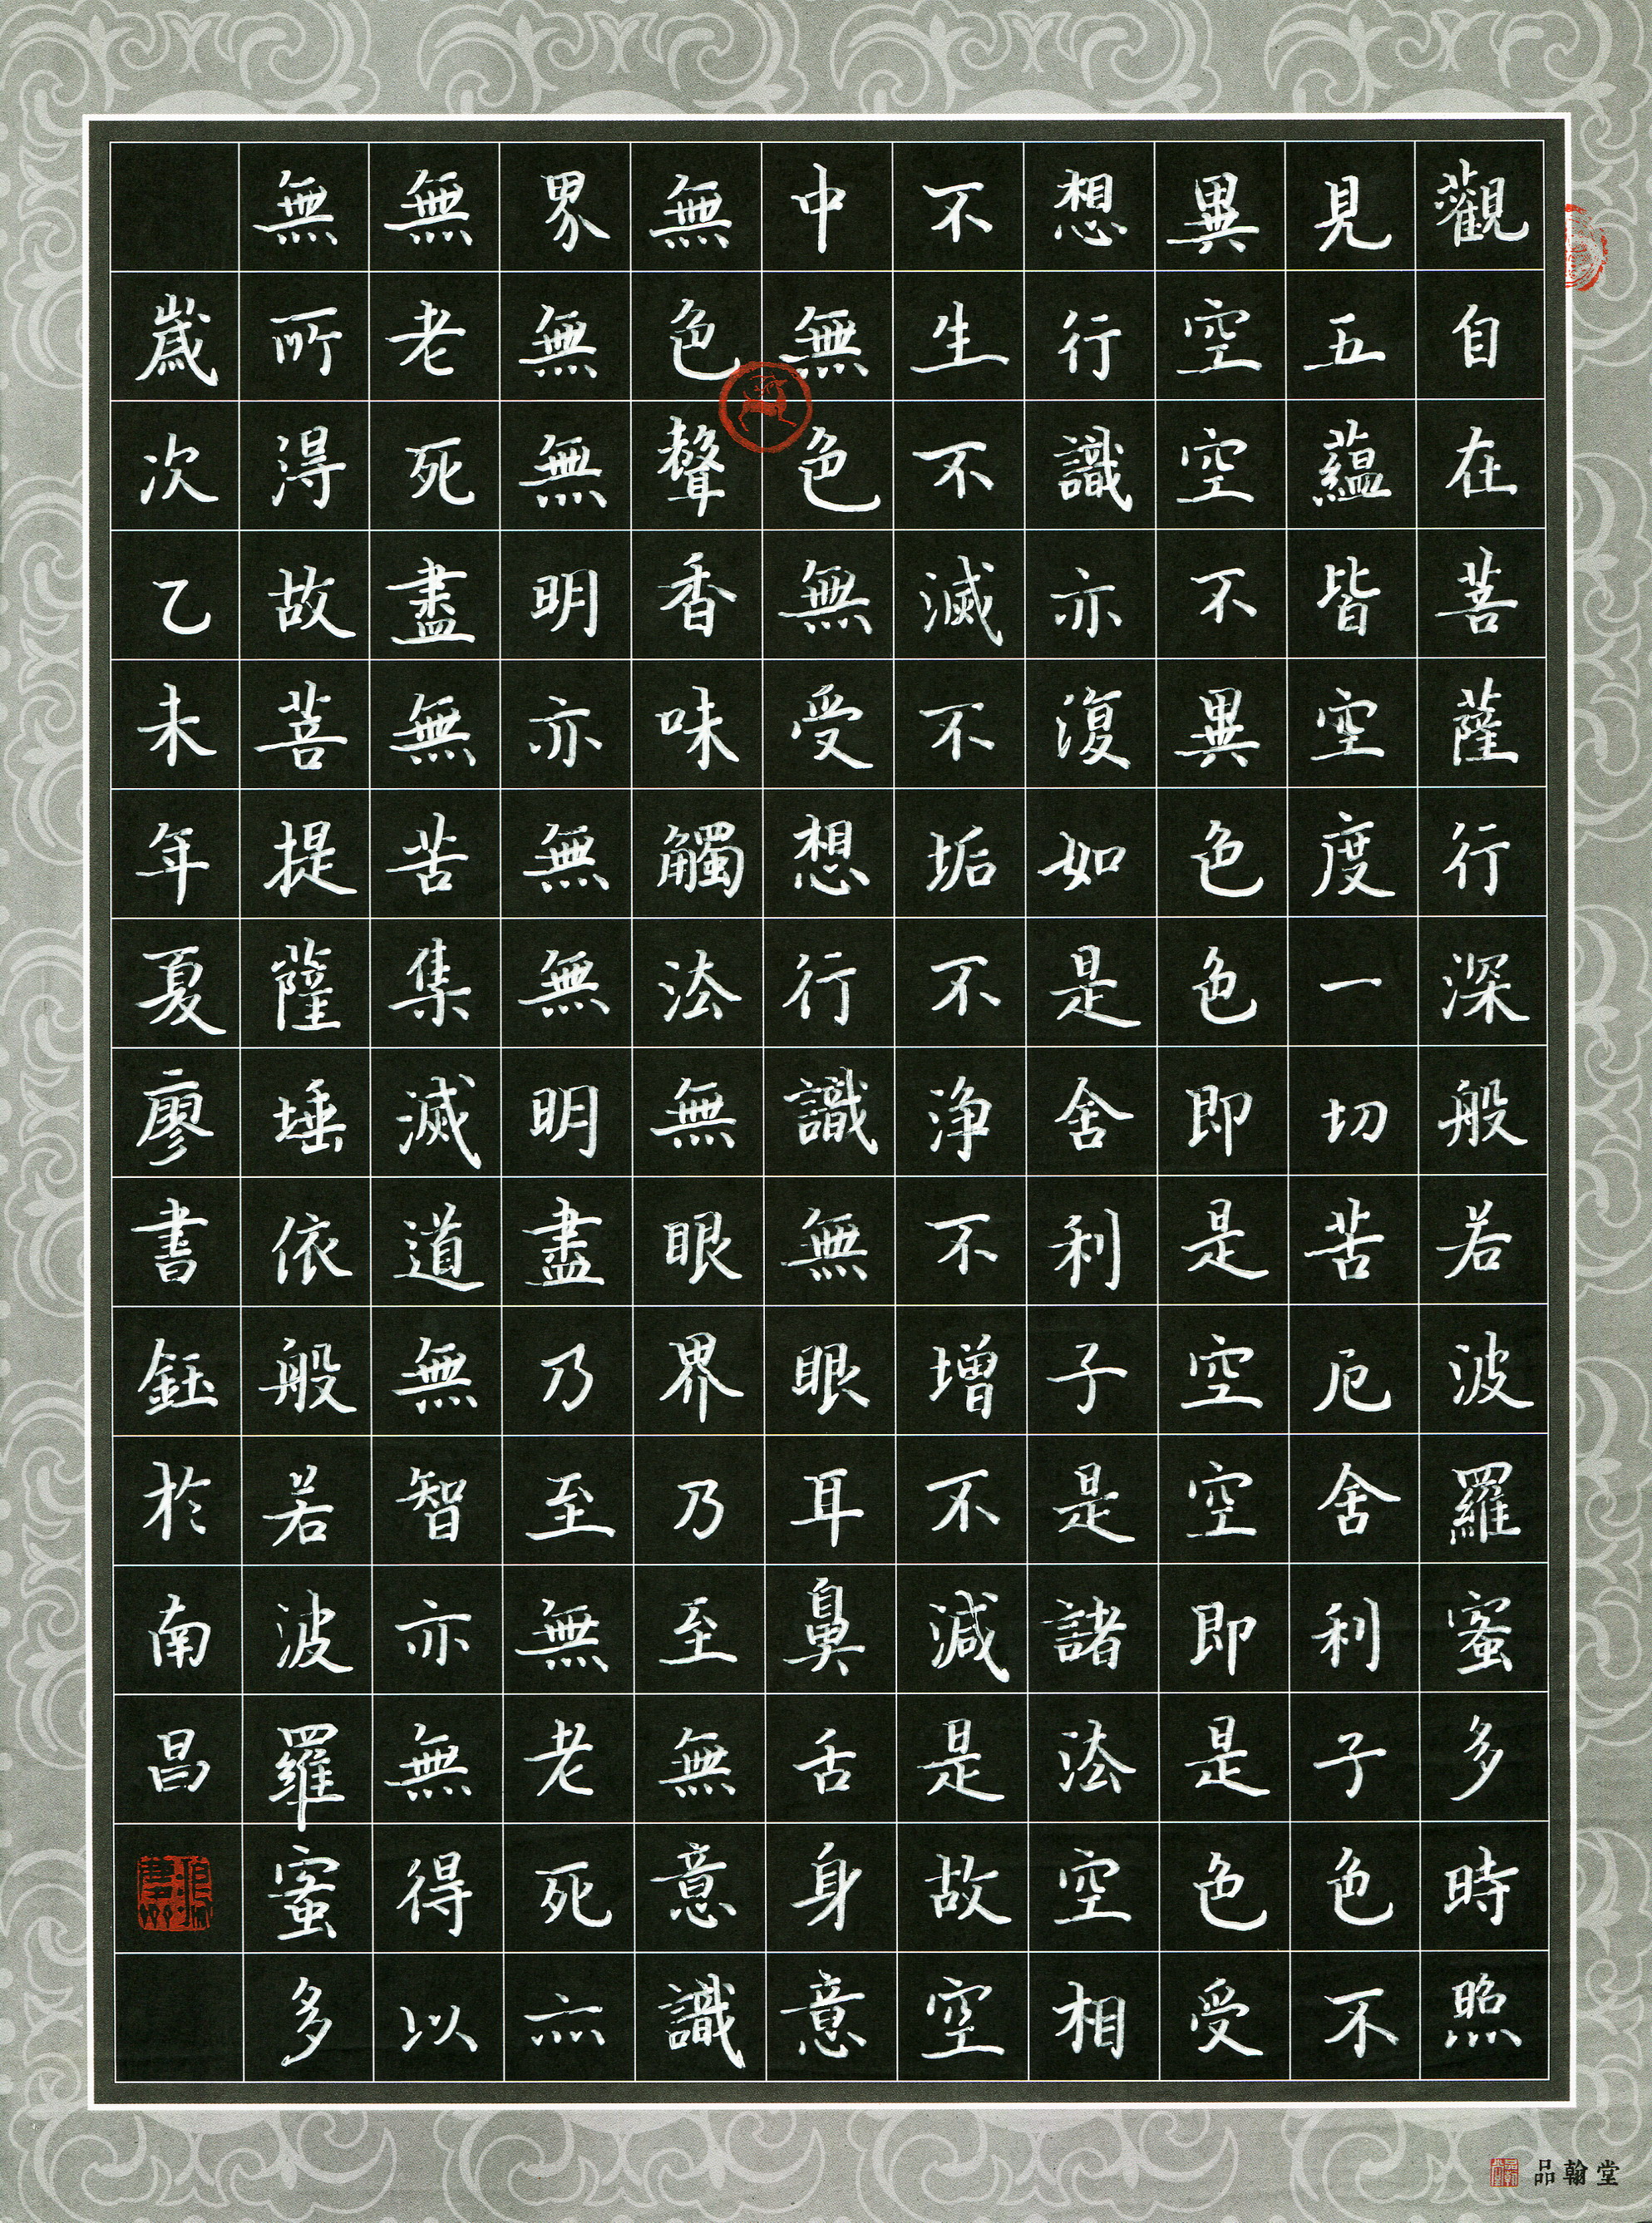 觀自在菩薩行深般若波羅蜜多時照
見五蘊皆空度一切苦厄舍利子色不
異空空不異色色即是空空即是色受
想行識亦復如是舍利子是諸法空相
不生不滅不垢不淨不增不減是故空
中無色無受想行識無眼耳鼻舌身意
無色聲香味觸法無眼界乃至無意識
界無無明亦無無明盡乃至無老死亦
無老死盡無苦集滅道無智亦無得以
無所得故菩提薩埵依般若波羅蜜多
歲次乙未年夏廖書鈺於南昌
品翰堂